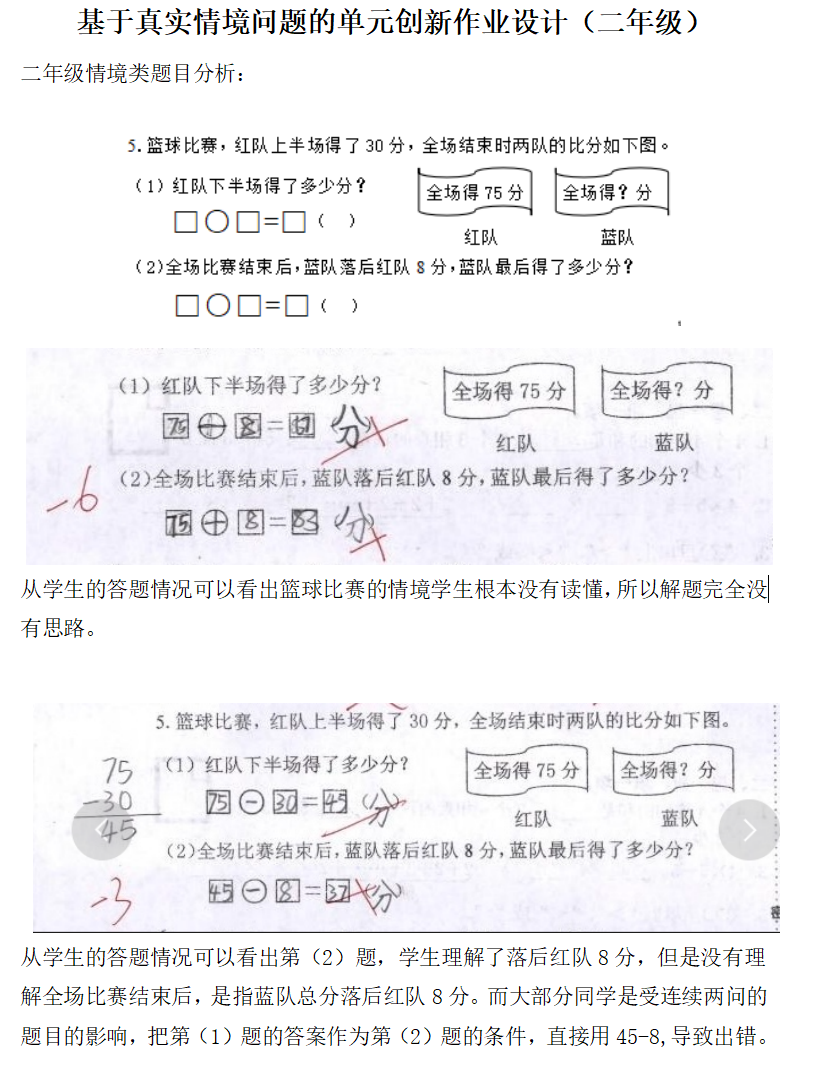 基于真实情境问题的单元创新作业设计（二年级）
二年级情境类题目分析：
5.篮球比赛，红队上半场得了30分，全场结束时两队的比分如下图。
（1）红队下半场得了多少分？
全场得75分 全场得？分
□○□=□（ ）
红队 蓝队
（2）全场比赛结束后，蓝队落后红队8分，蓝队最后得了多少分？
□○□=□（ ）
（1）红队下半场得了多少分？
全场得75分 全场得？分
75+8= （分）
红队 蓝队
-6
（2）全场比赛结束后，蓝队落后红队8分，蓝队最后得了多少分？
75+8=83（分）
从学生的答题情况可以看出篮球比赛的情境学生根本没有读懂，所以解题完全没
有思路。
5.篮球比赛，红队上半场得了30分，全场结束时两队的比分如下图。
（1）红队下半场得了多少分？
全场得75分 全场得？分
75
-30
45
75-30=45（分）
红队 蓝队
（2）全场比赛结束后，蓝队落后红队8分，蓝队最后得了多少分？
-3
45-8=37（分）
从学生的答题情况可以看出第（2）题，学生理解了落后红队8分，但是没有理
解全场比赛结束后，是指蓝队总分落后红队8分。而大部分同学是受连续两问的
题目的影响，把第（1）题的答案作为第（2）题的条件，直接用45-8,导致出错。